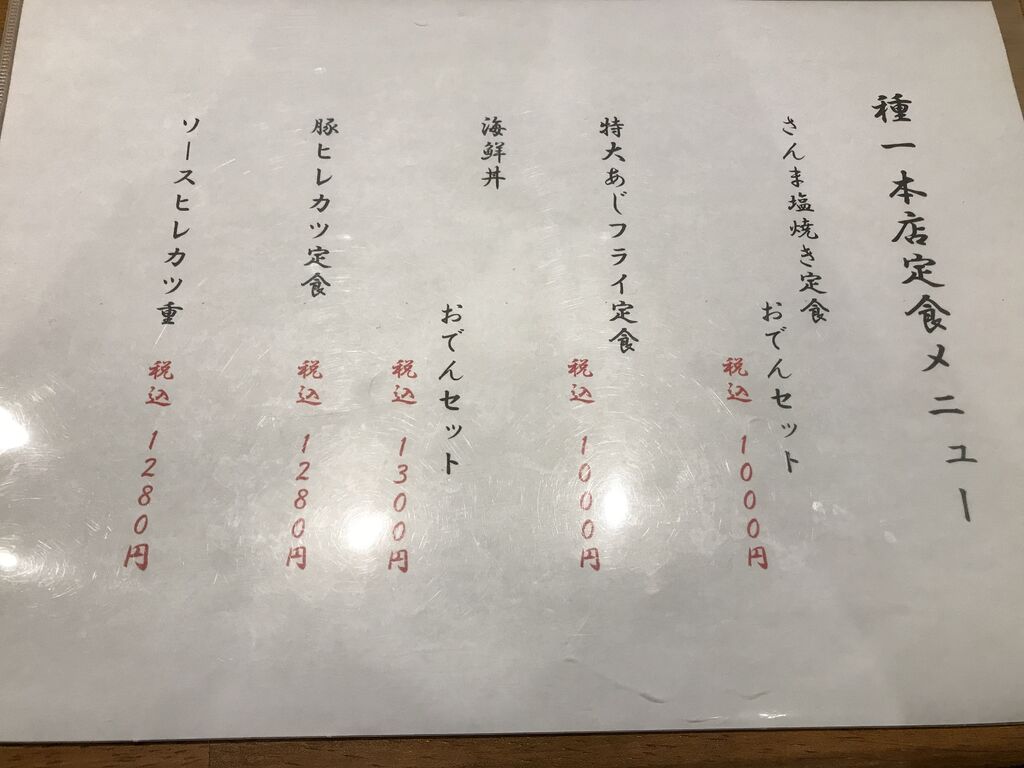 種一本店定食メニュー
さんま塩焼き定食
おでんセット
税込 1000円
特大あじフライ定食
税込 1000円
海鮮丼
おでんセット
税込 1300円
豚ヒレカツ定食
税込 1280円
ソースヒレカツ重
税込 1280円